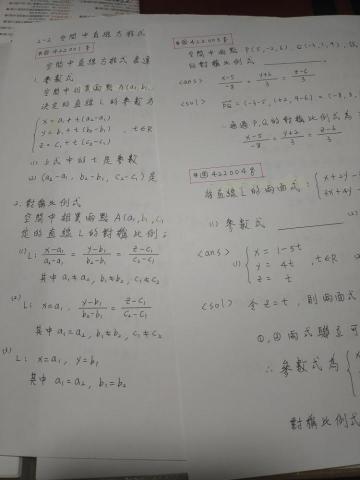 2-2 空間中直線方程式
422001
空間中直線方程式
1. 參數式
空間中相異兩點 A(a₁, b₁,
決定的直線 L 的參數
x = a₁ + t(a₂-a₁)
y = b₁ + t(b₂-b₁) , t∈R
z = c₁ + t(c₂-c₁)
(1) 上式中的 t 是參數
(2) (a₂-a₁, b₂-b₁, c₂-c₁) 是
2. 對稱比例式
空間中相異兩點 A(a₁, b₁, c₁
定的直線 L 的對稱比例
(1) L: (x-a₁)/(a₂-a₁) = (y-b₁)/(b₂-b₁) = (z-c₁)/(c₂-c₁)
其中 a₁≠a₂, b₁≠b₂, c₁≠c₂
(2) L: x=a₁, (y-b₁)/(b₂-b₁) = (z-c₁)/(c₂-c₁)
其中 a₁=a₂, b₁≠b₂, c₁≠c₂
(3) L: x=a₁, y=b₁
其中 a₁=a₂, b₁=b₂
422003
空間中兩點 P(5,-2,6)
的對稱比例式
<ans> (x-5)/-8 = (y+2)/3 = (z-6)/3
<sol> PQ = (-3-5, 1+2, 9-6) = (-8, 3,
∴通過 P, Q 的對稱比例式為
(x-5)/-8 = (y+2)/3 = (z-6)/3
422004
直線 L 的兩面式: { x+2y-
3x+4y-
(1) 參數式
<ans>
(1) { x = 1-5t
y = 4t , t∈R
z = t
<sol> 令 z=t, 則兩面式
①, ② 兩式聯立可
∴ 參數式為 {
對稱比例式